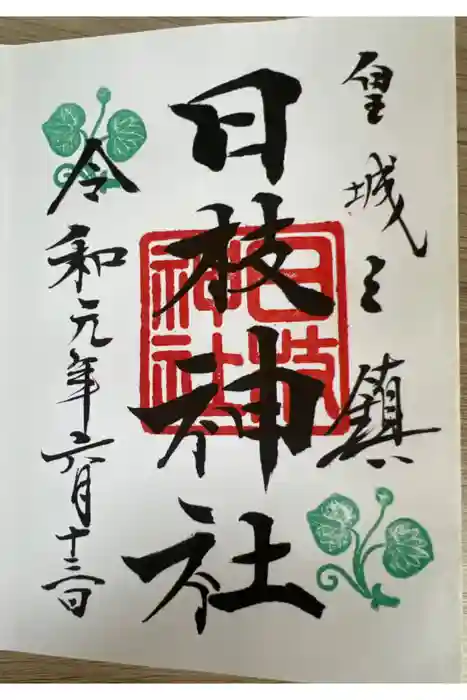 皇城之鎮
日枝神社
日枝神社
令和元年六月十三日